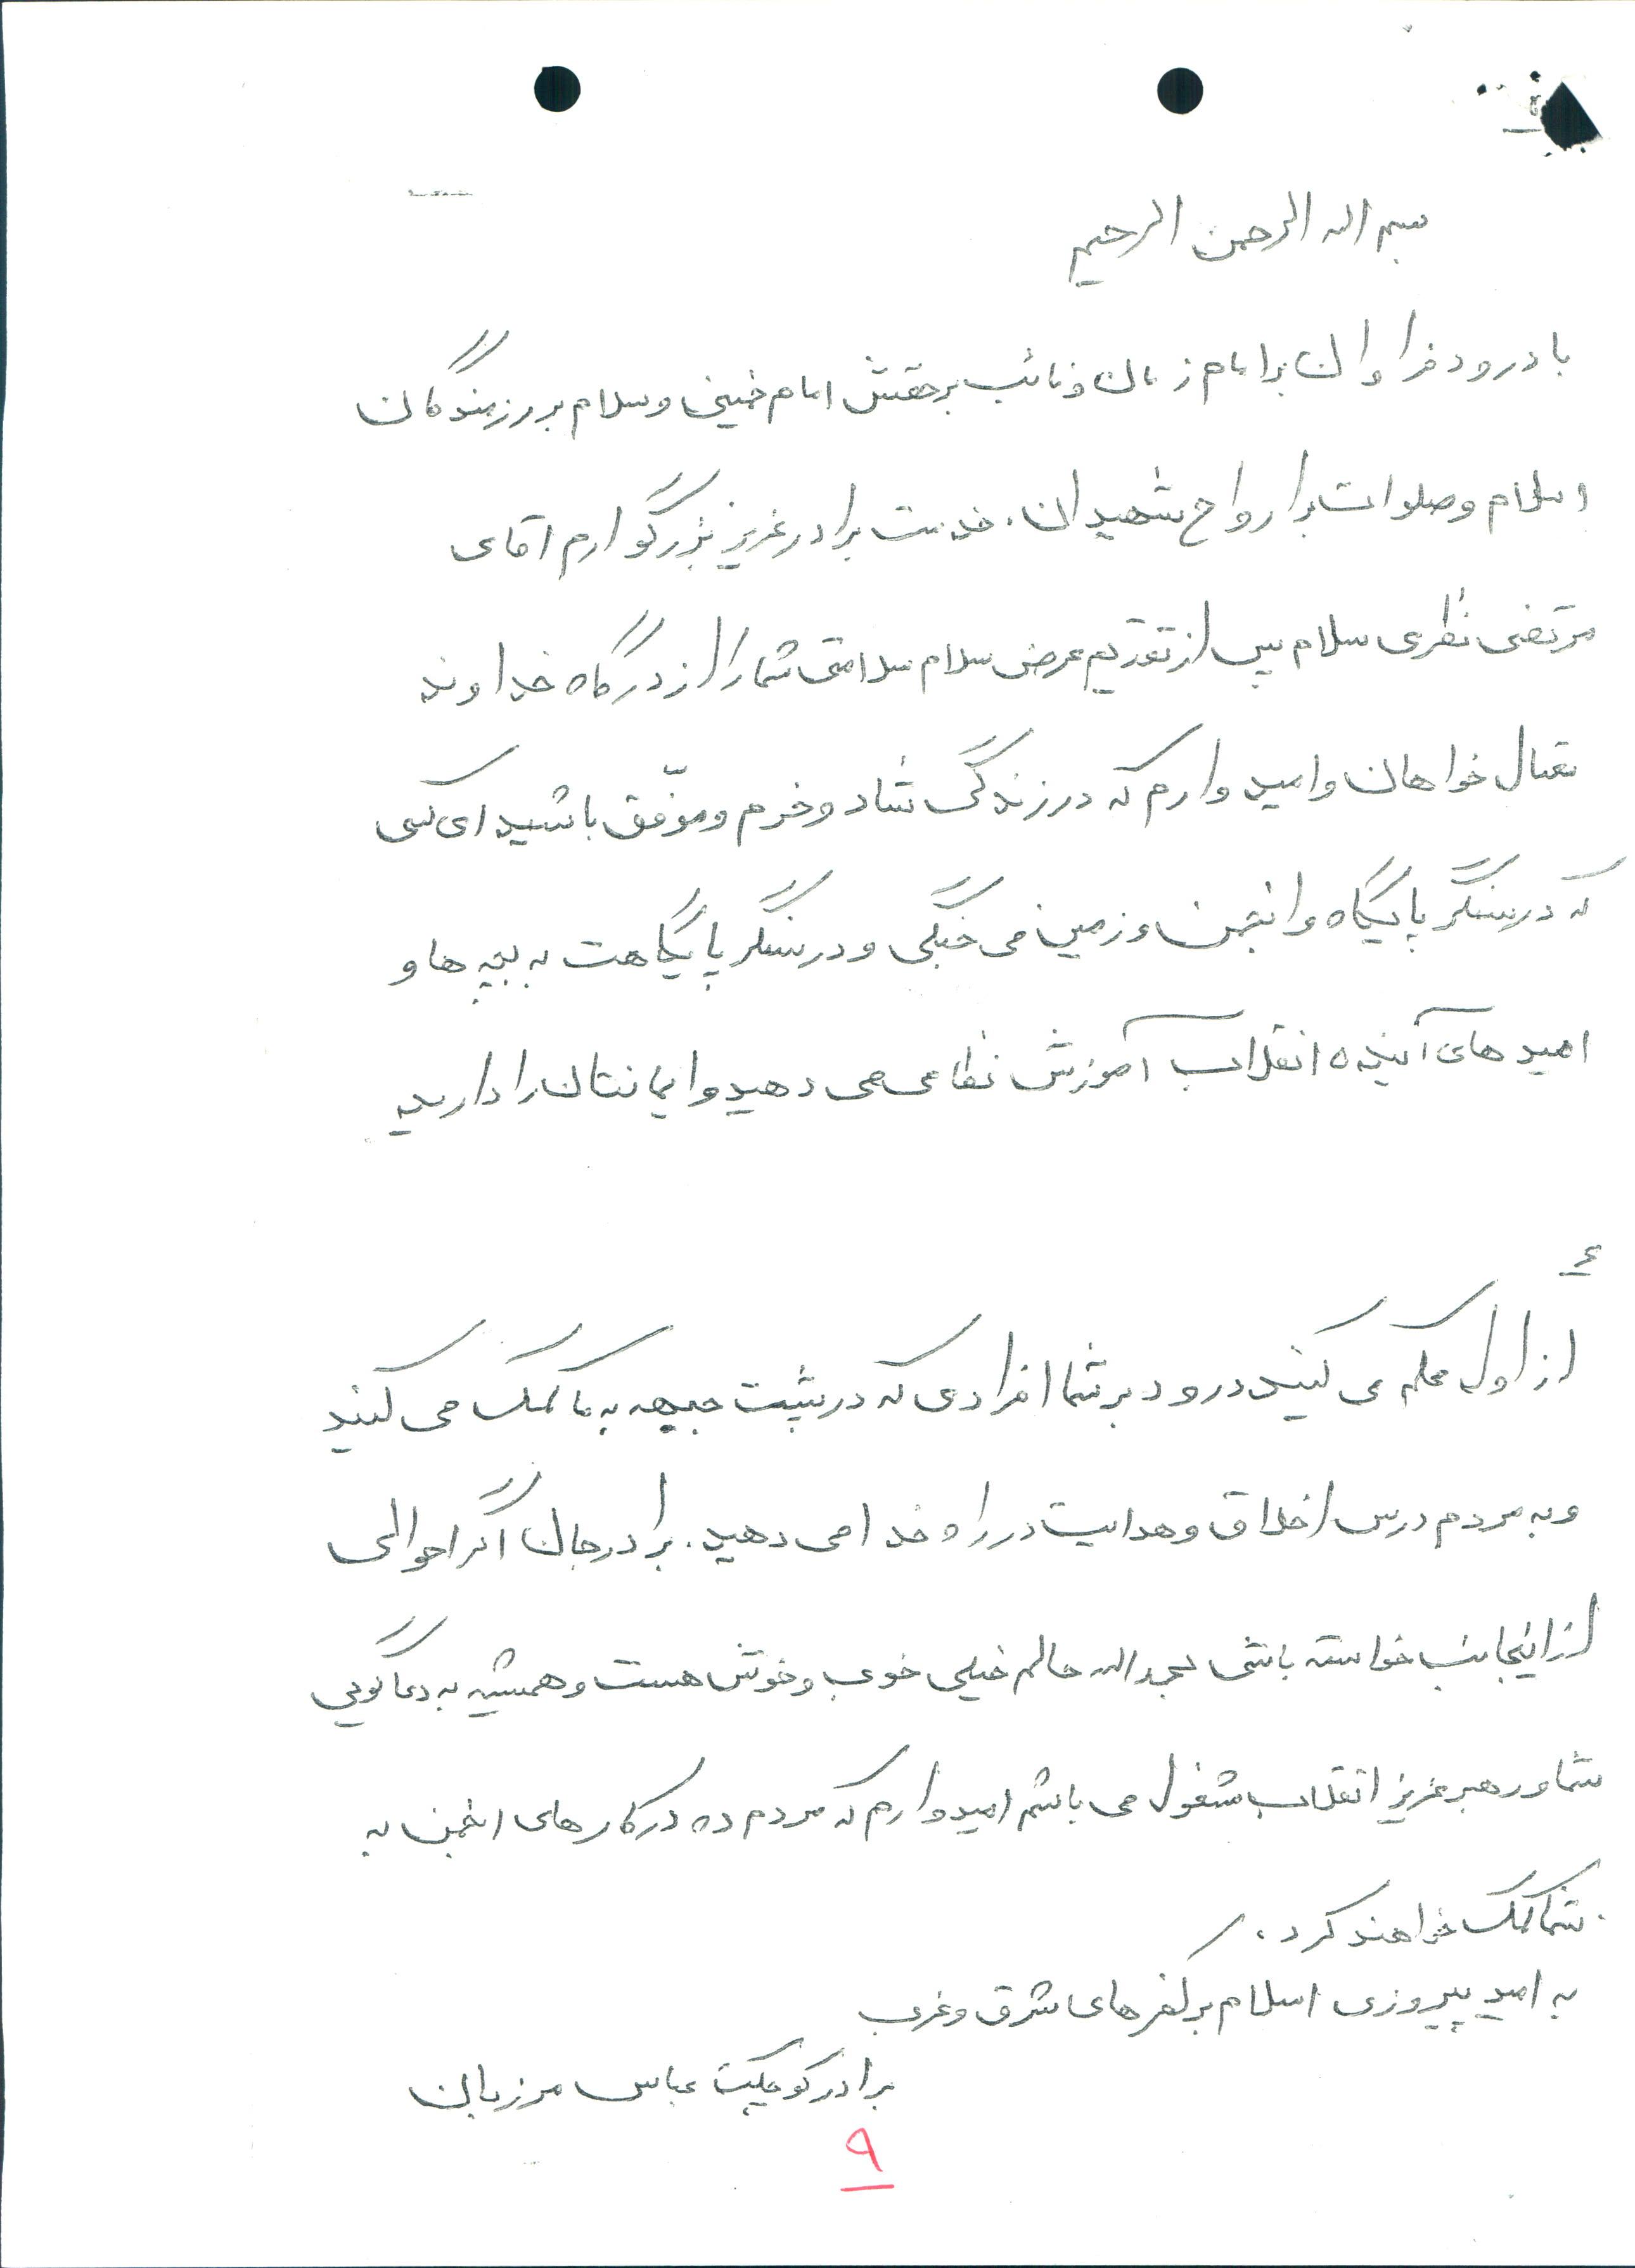 بسم اله الرحمن الرحیم
با درود فراوان بر امام زمان و نائب برحقش امام خمینی و سلام بر رزمندگان
اسلام و صلوات بر ارواح شهیدان. خدمت برادر عزیز بزرگوارم آقای
مرتضی نظری سلام پس از تقدیم عرض سلام سلامتی شما را از درگاه خداوند
تعال خواهان و امیدوارم که در زندگی شاد و خرم و موّفق باشید ای کسی
که در سنگر پایگاه و انجمن و زمین می جنگی و در سنگر پایگاهت به بچه ها و
امیدهای آینده انقلاب آموزش نظامی می دهید و ایمانتان را دارید
۶
از اول محکم می کنید درود بر شما افرادی که در پشت جبهه به ما کمک می کنید
و به مردم درس اخلاق و هدایت در راه خدا می دهید. برادر جان اگر احوالی
از اینجانب خواسته باشی بحمداله حالم خیلی خوب و خوش هست و همیشه به دعاگویی
شما و رهبر عزیز انقلاب مشغول می باشم امیدوارم که مردم ده در کارهای انجمن به
شما کمک خواهند کرد.
به امید پیروزی اسلام بر کفرهای شرق و غرب
برادر کوچکت عباس مرزبان
۹